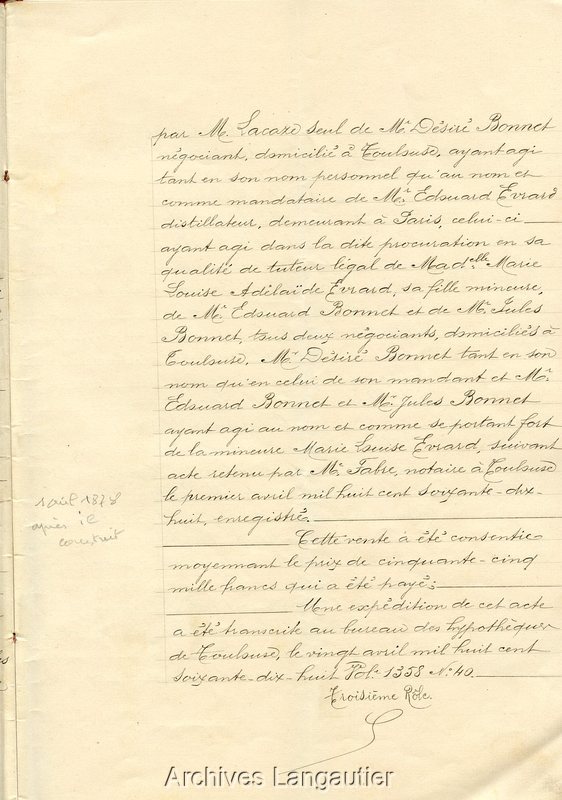 par M. Lacaze seul de Mr. Désiré Bonnet
négociant, domicilié à Toulouse, ayant agi
tant en son nom personnel qu'au nom et
comme mandataire de Mr. Edouard Evrard
distillateur, demeurant à Paris, celui-ci
ayant agi dans la dite procuration en sa
qualité de tuteur légal de Madelle Marie
Louise Adélaïde Evrard, sa fille mineure,
de Mr. Edouard Bonnet et de Mr. Jules
Bonnet, tous deux négociants, domiciliés à
Toulouse. Mr. Désiré Bonnet tant en son
nom qu'en celui de son mandant et Mr.
Edouard Bonnet et Mr. Jules Bonnet
ayant agi au nom et comme se portant fort
de la mineure Marie Louise Evrard, suivant
acte retenu par Me. Fabre, notaire à Toulouse
le premier avril mil huit cent soixante-dix-
huit, enregistré.
1 avril 1878
après il
construit
Cette vente a été consentie
moyennant le prix de cinquante-cinq
mille francs qui a été payé;
Une expédition de cet acte
a été transcrite au bureau des hypothèques
de Toulouse, le vingt avril mil huit cent
soixante-dix-huit Vol. 1358 No. 40.
Troisième Rôle.
Archives Langautier